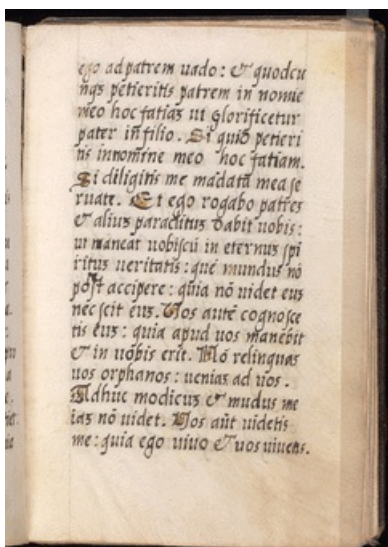 ego ad patrem uado: & quodcū
nqȝ petieritis patrem in nomie
meo hoc fatiaȝ ut glorificetur
pater in filio. Si quid petieri
tis in nomine meo hoc fatiam.
Si diligitis me mādata mea se
ruate. Et ego rogabo patreȝ
& alius paraclitus dabit uobis:
ut maneat uobiscū in eternuȝ spi
ritus ueritatis: quē mundus nō
pōt accipere: quia nō uidet euȝ
nec scit euȝ. Uos autē cognosce
tis euȝ: quia apud uos manēbit
& in uobis erit. Nō relinquaȝ
uos orphanos: ueniaȝ ad uos.
Adhuc modicuȝ & mūdus me
iaȝ nō uidet. Uos aūt uidetis
me: quia ego uiuo & uos uiuetis.